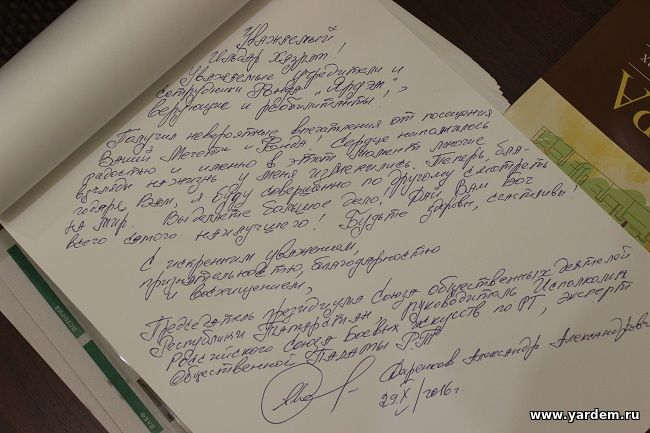 Уважаемый
Ильдар Хазрат!
Уважаемые учредители и
сотрудники Фонда „Ярдэм",
верующие и реабилитанты!
Получил невероятные впечатления от посещения
Вашей Мечети и Фонда. Сердце наполнилось
радостью и именно в этот момент многие
взгляды на жизнь у меня изменились. Теперь, бла-
годаря Вам, я буду совершенно по другому смотреть
на мир. Вы делаете большое дело! Дай Вам Бог
всего самого наилучшего! Будьте здоровы, счастливы!
С искренним уважением,
признательностью, благодарностью
и восхищением,
Председатель президиума Союза общественных деятелей
Республики Татарстан, руководитель Исполкома
Российского Союза Боевых Искусств по РТ, эксперт
Общественной Палаты РТ
Александр Александрович
29.X/2016г.
ИСТОРИЯ
www.yardem.ru